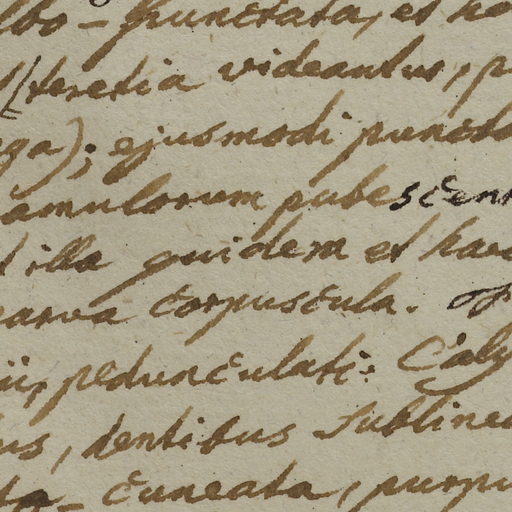 lbo-punctata, et ha
(teretia videantur, p
ga); ejusmodi puncta
amulorum pubescent
illa quidem et haec
parva corpuscula.
ii, pedunculati: Caly
us, dentibus sublinea
ta-cuneata, purpu